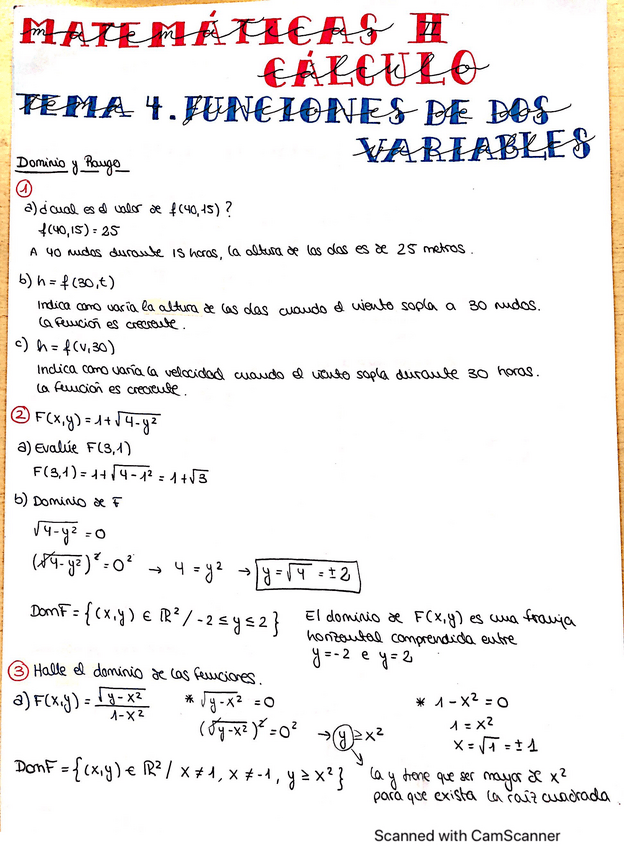 MATEMÁTICAS II
CÁLCULO
TEMA 4. FUNCIONES DE DOS
VARIABLES
Dominio y Rango
①
a) ¿cual es el valor de f(40,15)?
f(40,15) = 25
A 40 nudos durante 15 horas, la altura de las olas es de 25 metros.
b) h = f(30,t)
Indica como varía la altura de las olas cuando el viento sopla a 30 nudos.
La función es creciente.
c) h = f(v,30)
Indica como varía la velocidad cuando el viento sopla durante 30 horas.
La función es creciente.
② F(x,y) = 1+√4-y²
a) Evalúe F(3,1)
F(3,1) = 1+√4-1² = 1+√3
b) Dominio de F
√4-y² = 0
(√4-y²)² = 0² → 4 = y² → y = √4 = ±2
DomF = {(x,y) ∈ ℝ² / -2 ≤ y ≤ 2} El dominio de F(x,y) es una franja
horizontal comprendida entre
y=-2 e y=2
③ Halle el dominio de las funciones.
a) F(x,y) = √y-x² / 1-x² * √y-x² = 0 * 1-x² = 0
(√y-x²)² = 0² → y ≥ x² 1 = x²
x = √1 = ±1
DomF = {(x,y) ∈ ℝ² / x ≠ 1, x ≠ -1, y ≥ x²} La y tiene que ser mayor de x²
para que exista la raíz cuadrada.
Scanned with CamScanner